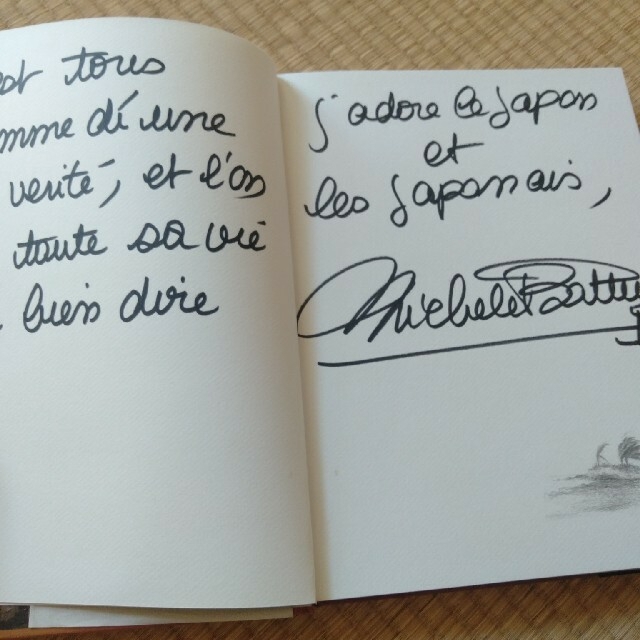 est tous
mme dé une
verité, et l'on
toute sa vie
bien dire
j'adore le Japon
et
les Japonais,
Michele Batt